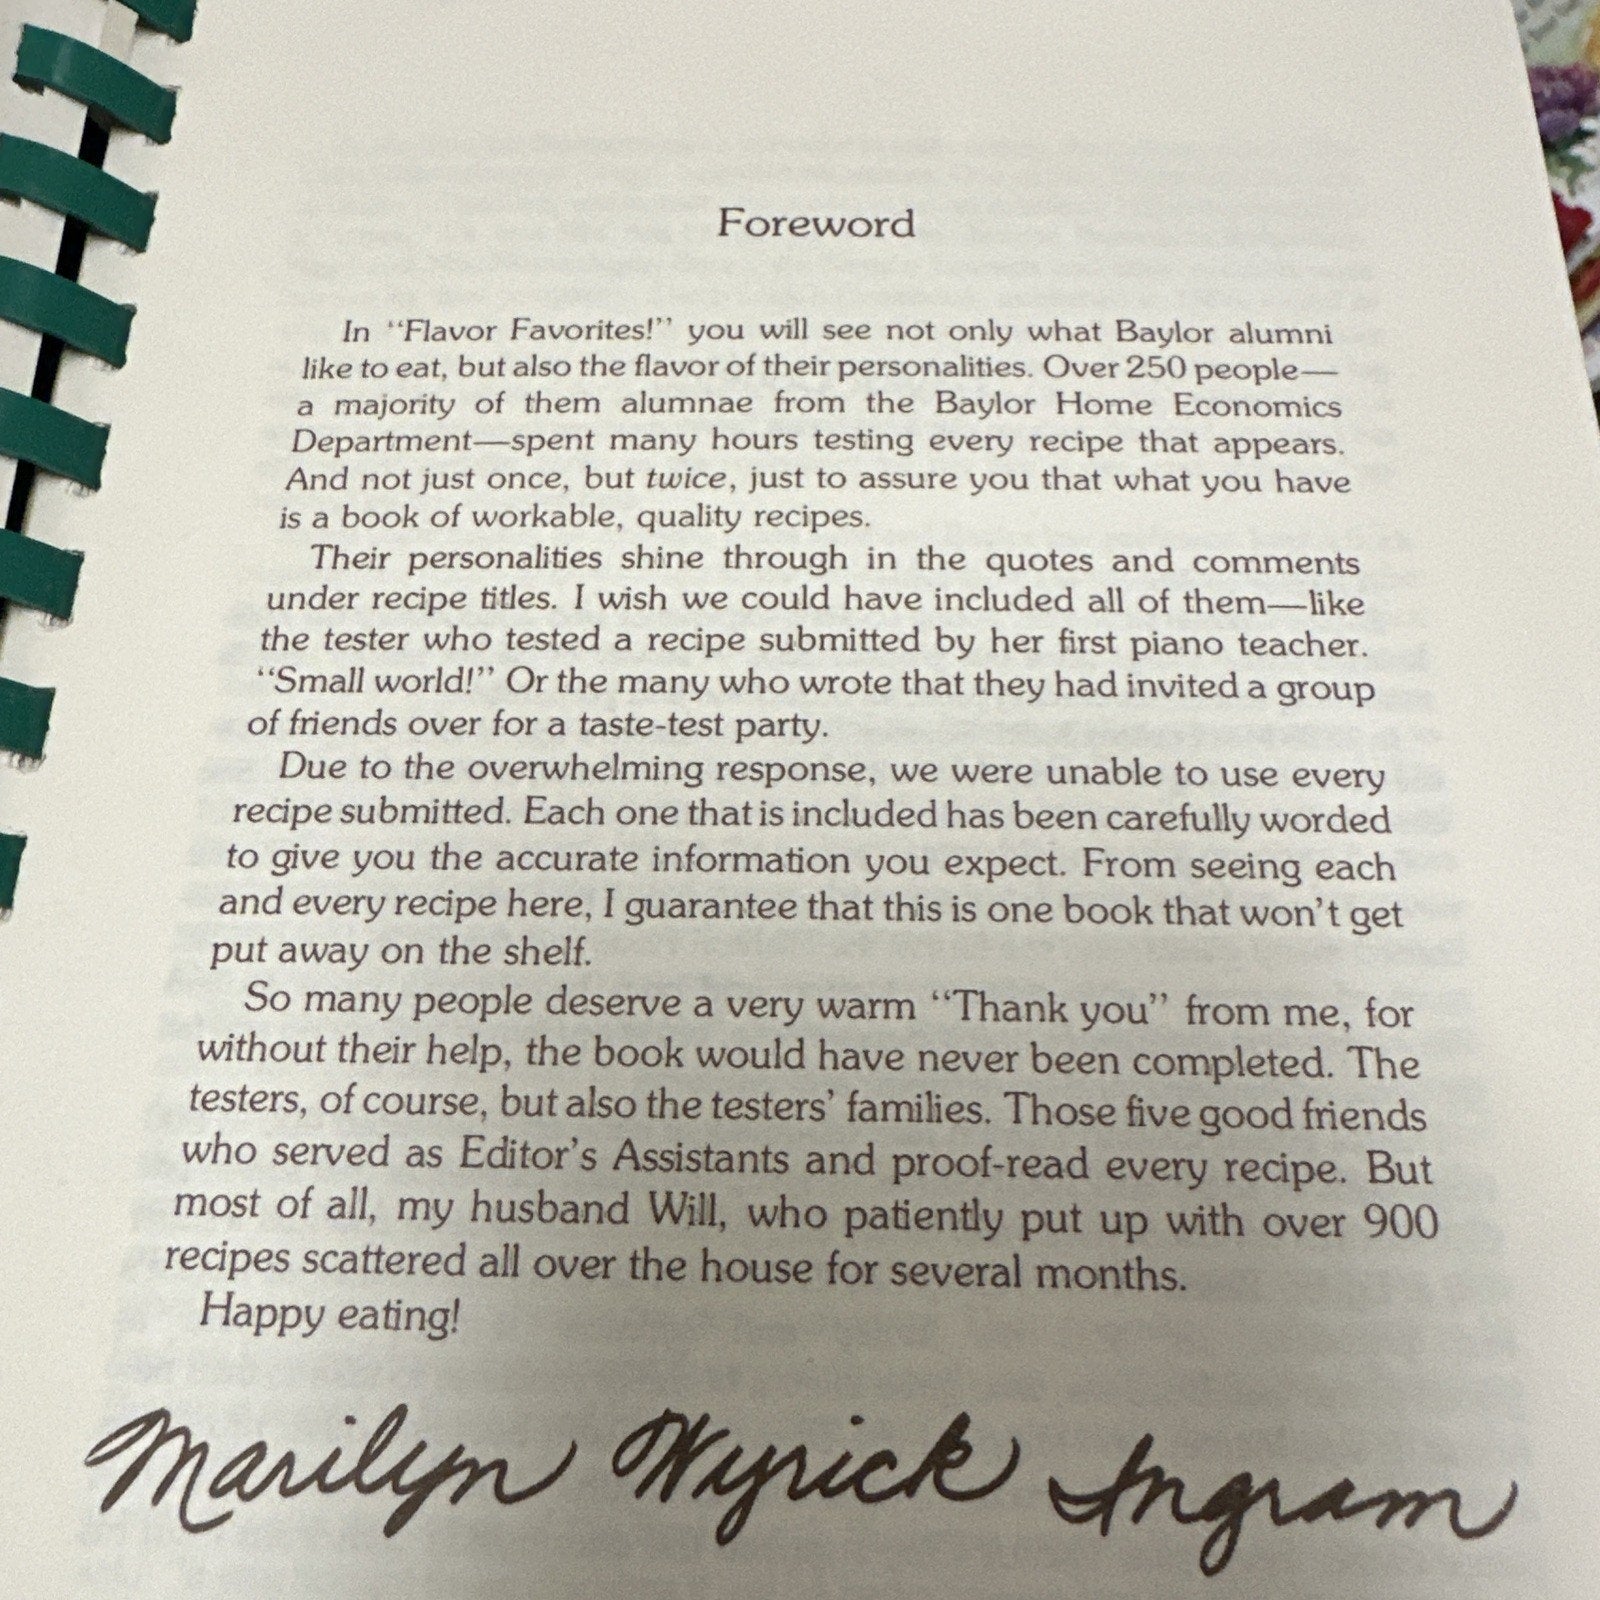 Foreword
In “Flavor Favorites!” you will see not only what Baylor alumni
like to eat, but also the flavor of their personalities. Over 250 people—
a majority of them alumnae from the Baylor Home Economics
Department—spent many hours testing every recipe that appears.
And not just once, but twice, just to assure you that what you have
is a book of workable, quality recipes.
Their personalities shine through in the quotes and comments
under recipe titles. I wish we could have included all of them—like
the tester who tested a recipe submitted by her first piano teacher.
“Small world!” Or the many who wrote that they had invited a group
of friends over for a taste-test party.
Due to the overwhelming response, we were unable to use every
recipe submitted. Each one that is included has been carefully worded
to give you the accurate information you expect. From seeing each
and every recipe here, I guarantee that this is one book that won’t get
put away on the shelf.
So many people deserve a very warm “Thank you” from me, for
without their help, the book would have never been completed. The
testers, of course, but also the testers’ families. Those five good friends
who served as Editor’s Assistants and proof-read every recipe. But
most of all, my husband Will, who patiently put up with over 900
recipes scattered all over the house for several months.
Happy eating!
Marilyn Wyrick Ingram